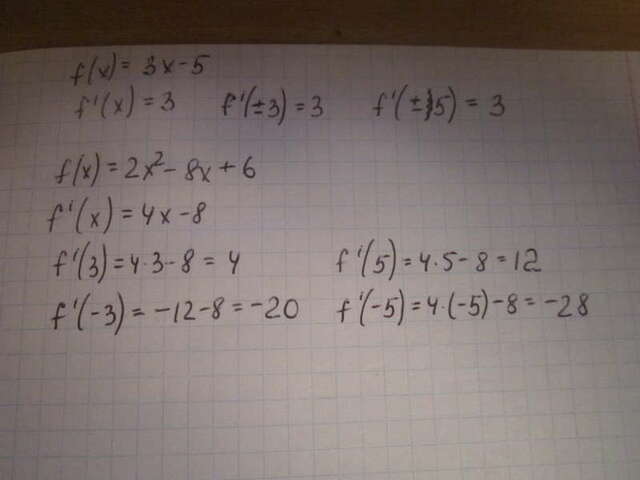 f(x) = 3x - 5
f'(x) = 3 f'(±3) = 3 f'(±5) = 3
f(x) = 2x² - 8x + 6
f'(x) = 4x - 8
f'(3) = 4·3 - 8 = 4 f'(5) = 4·5 - 8 = 12
f'(-3) = -12 - 8 = -20 f'(-5) = 4·(-5) - 8 = -28